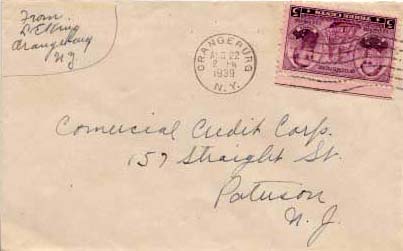 From
Orangeburg
N.Y.
ORANGEBURG
AUG 22
2 PM
1939
N.Y.
Comercial Credit Corp.
157 Straight St.
Paterson
N. J.